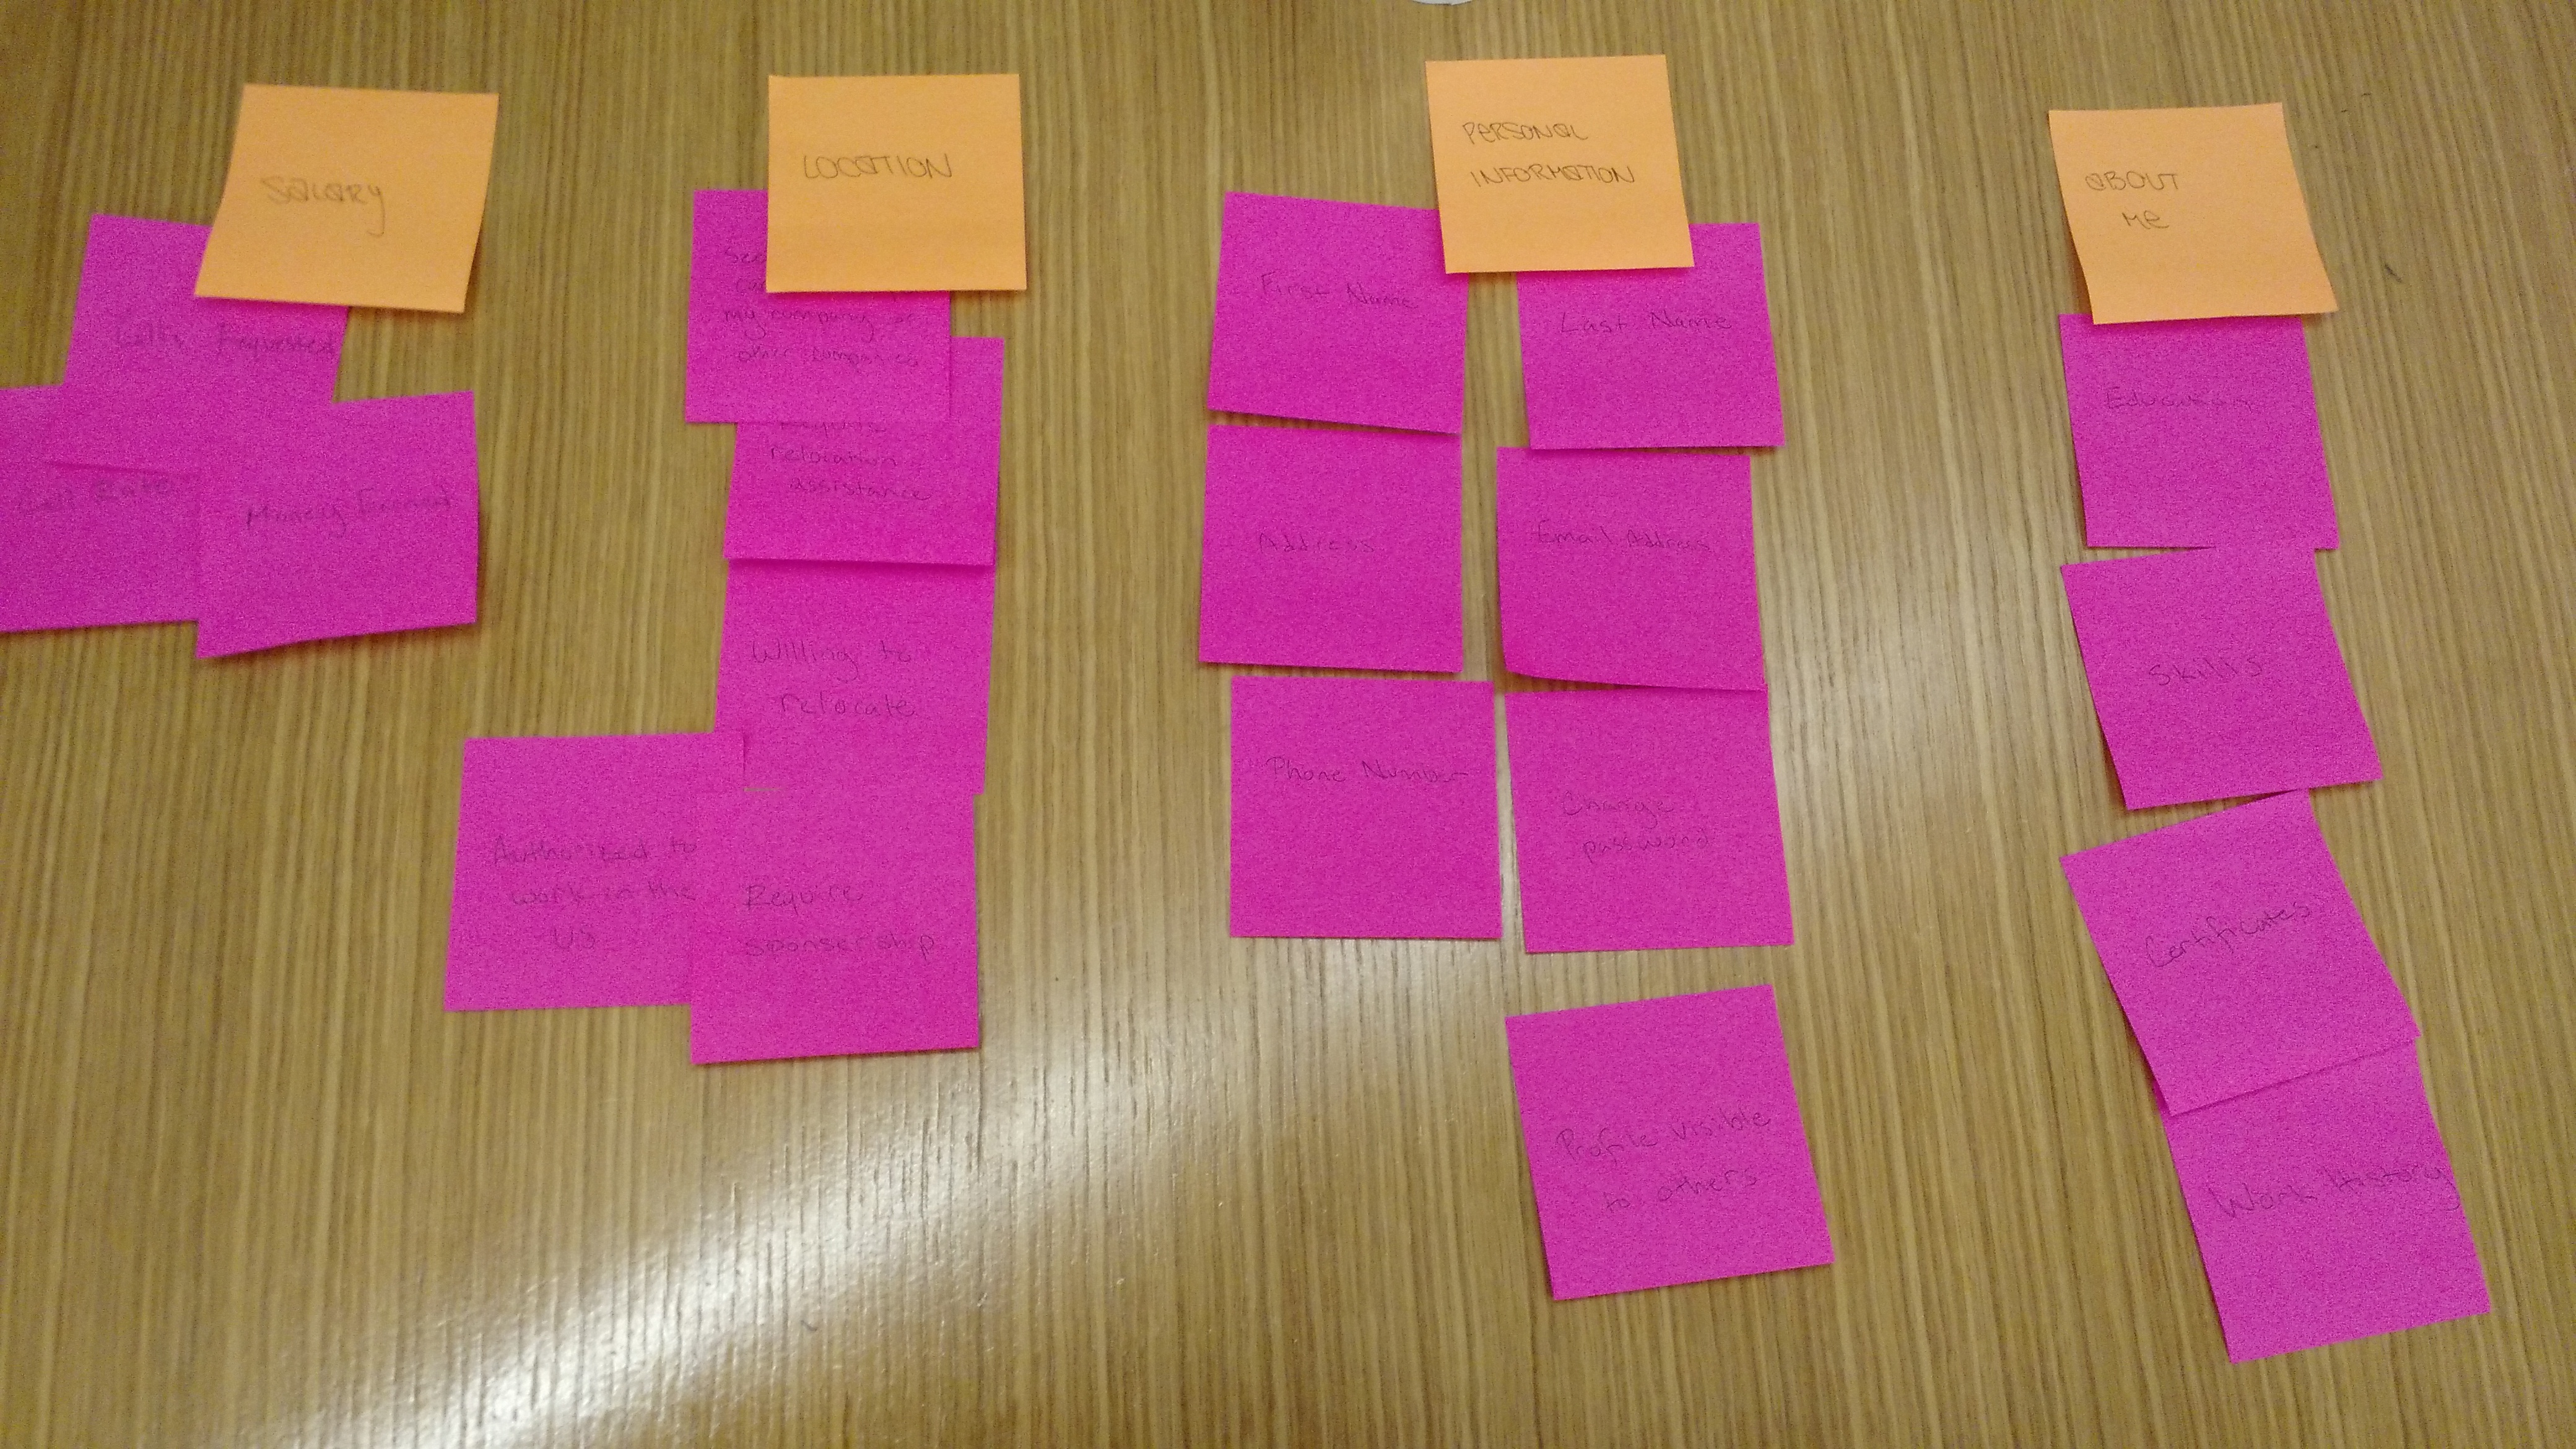 SALARY
Calls Requested
Call Rate
Money Earned
LOCATION
my company or
other companies
Require
relocation
assistance
Willing to
relocate
Authorized to
work in the
US
Require
sponsership
PERSONAL
INFORMATION
First Name
Last Name
Address
Email Address
Phone Number
Change
password
Profile visible
to others
ABOUT
Me
Education
Skills
Certificates
Work History